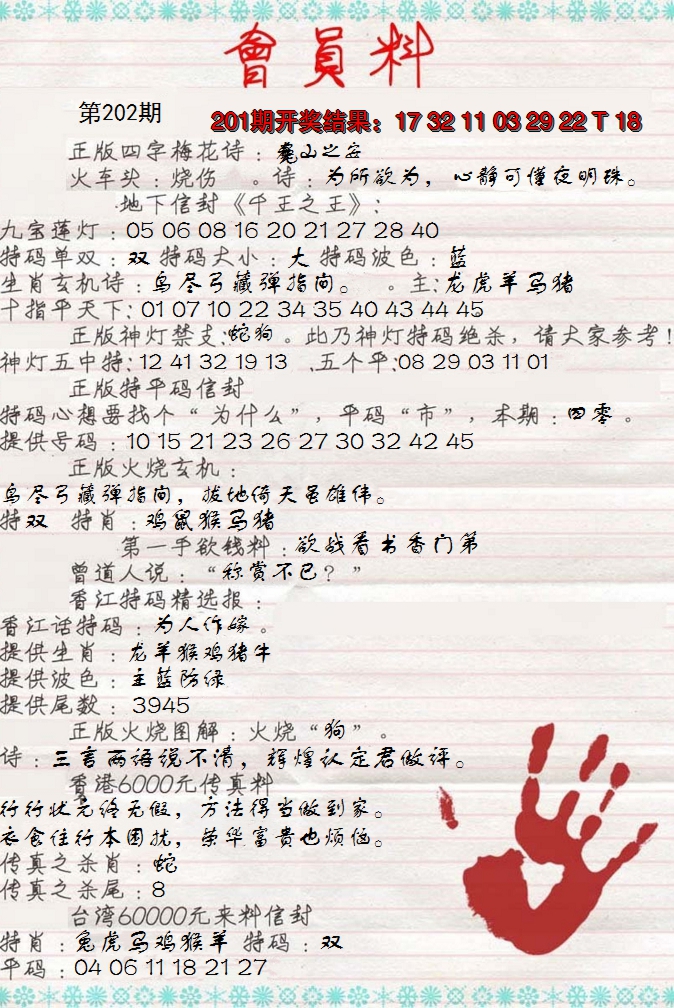 會員料
第202期
201期开奖结果：17 32 11 03 29 22 T 18
正版四字梅花诗：龟山之安
火车头：烧伤 。诗：为所欲为，心静可懂夜明珠。
地下信封《千王之王》：
九宝莲灯：05 06 08 16 20 21 27 28 40
特码单双：双 特码大小：大 特码波色：蓝
生肖玄机诗：鸟尽弓藏弹指间。 。主：龙虎羊马猪
十指平天下：01 07 10 22 34 35 40 43 44 45
正版神灯禁支：蛇狗。此乃神灯特码绝杀，请大家参考！
神灯五中特：12 41 32 19 13 .五个平：08 29 03 11 01
正版特平码信封
特码心想要找个“为什么”，平码“市”，本期：四零。
提供号码：10 15 21 23 26 27 30 32 42 45
正版火烧玄机：
鸟尽弓藏弹指间，拔地倚天虽雄伟。
特双 特肖：鸡鼠猴马猪
第一手欲钱料：欲战看书香门第
曾道人说：“称赏不已？”
香江特码精选报：
香江话特码：为人作嫁。
提供生肖：龙羊猴鸡猪牛
提供波色：主蓝防绿
提供尾数：3945
正版火烧图解：火烧“狗”。
诗：三言两语说不清，辉煌认定君做评。
香港6000元传真料
行行状元终无假，方法得当做到家。
衣食住行本困扰，荣华富贵也烦恼。
传真之杀肖：蛇
传真之杀尾：8
台湾60000元来料信封
特肖：兔虎马鸡猴羊 特码：双
平码：04 06 11 18 21 27